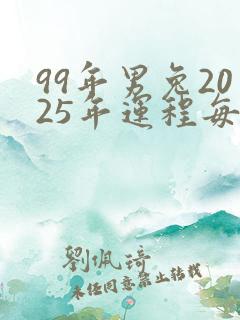 99年男兔20
25年運程每
劉佩琦
未经同意禁止转载